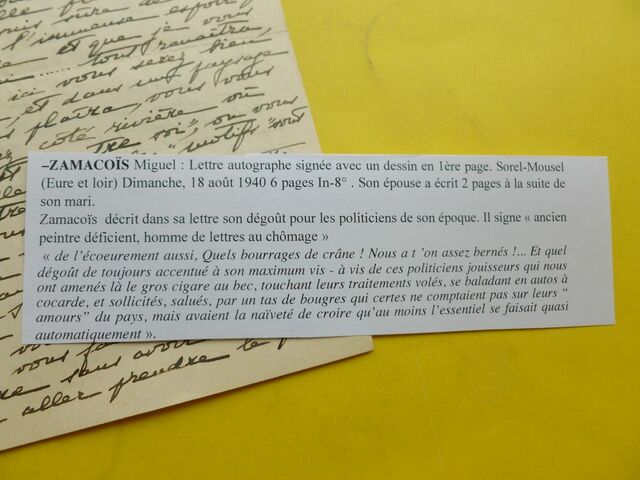 l'immense espoir
et que je vous
tout renaîtra
ici vous serez bien,
et dans un paysage
plaîra, vous vous
côté rivière où
"motifs" sont
–ZAMACOÏS Miguel : Lettre autographe signée avec un dessin en 1ère page. Sorel-Mousel
(Eure et loir) Dimanche, 18 août 1940 6 pages In-8° . Son épouse a écrit 2 pages à la suite de
son mari.
Zamacoïs décrit dans sa lettre son dégoût pour les politiciens de son époque. Il signe « ancien
peintre déficient, homme de lettres au chômage »
« de l'écoeurement aussi, Quels bourrages de crâne ! Nous a t 'on assez bernés !... Et quel
dégoût de toujours accentué à son maximum vis - à vis de ces politiciens jouisseurs qui nous
ont amenés là le gros cigare au bec, touchant leurs traitements volés, se baladant en autos à
cocarde, et sollicités, salués, par un tas de bougres qui certes ne comptaient pas sur leurs “
amours” du pays, mais avaient la naïveté de croire qu'au moins l'essentiel se faisait quasi
automatiquement ».
vous
sans avoir
aller prendre le